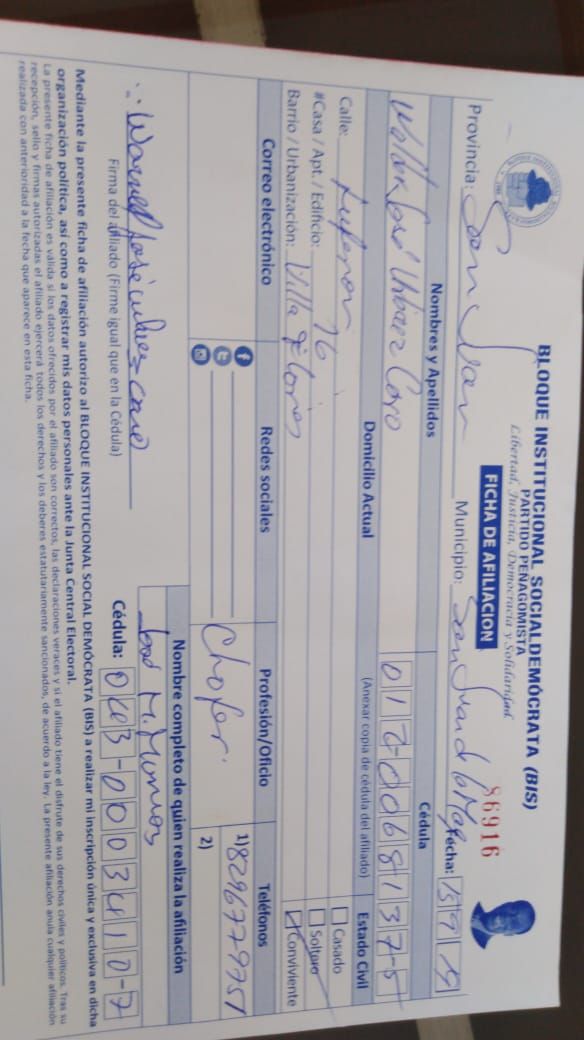 BLOQUE INSTITUCIONAL SOCIALDEMÓCRATA (BIS)
PARTIDO PEÑAGOMISTA
Libertad, Justicia, Democracia y Solidaridad
FICHA DE AFILIACION
86916
Provincia: San Juan Municipio: San Juan de la Mag Fecha: 15 9 19
Nombres y Apellidos Cédula Estado Civil
José Urbaez Caro 012-0068137-5
Casado
Soltero
Conviviente
Domicilio Actual (Anexar copia de cédula del afiliado)
Calle:
#Casa / Apt. / Edificio: 76
Barrio / Urbanización: Villa Flores
Correo electrónico Redes sociales Profesión/Oficio Teléfonos
Chofer. 1) 8296779751
2)
Nombre completo de quien realiza la afiliación
José M.
José
Firma del afiliado (Firme igual que en la Cédula) Cédula: 043-0003410-7
Mediante la presente ficha de afiliación autorizo al BLOQUE INSTITUCIONAL SOCIAL DEMÓCRATA (BIS) a realizar mi inscripción única y exclusiva en dicha
organización política, así como a registrar mis datos personales ante la Junta Central Electoral.
La presente ficha de afiliación es válida si los datos ofrecidos por el afiliado son correctos, las declaraciones veraces y si el afiliado tiene el disfrute de sus derechos civiles y políticos. Tras su
recepción, sello y firmas autorizadas el afiliado ejercerá todos los derechos y los deberes estatutariamente sancionados, de acuerdo a la ley. La presente afiliación anula cualquier afiliación
realizada con anterioridad a la fecha que aparece en esta ficha.